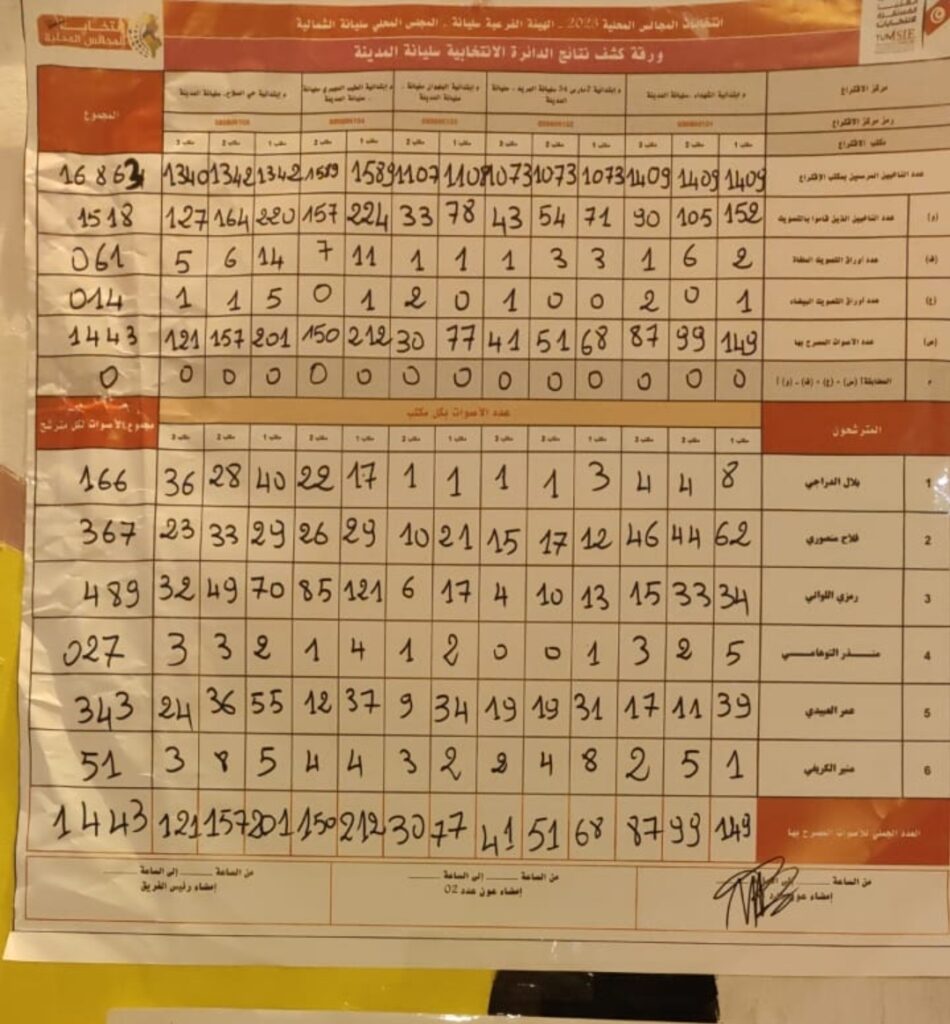 انتخابات المجالس المحلية 2023 - الهيئة الفرعية سليانة - المجلس المحلي سليانة الشمالية
ورقة كشف نتائج الدائرة الانتخابية سليانة المدينة
TUNISIE
مركز الاقتراع
م إبتدائية الشهداء -سليانة المدينة
المجموع
رمز مركز الاقتراع
مكتب الاقتراع مكتب 1 مكتب 2 مكتب 3 مكتب 1 مكتب 2 مكتب 3 مكتب 1 مكتب 2 مكتب 1 مكتب 2 مكتب 1 مكتب 2 مكتب 3
عدد الناخبين المرسمين بمكتب الاقتراع 1409 1409 1409 1073 1073 1073 1108 1107 1589 1589 1342 1342 1340 16863
(و) عدد الناخبين الذين قاموا بالتصويت 152 105 90 71 54 43 78 33 224 157 220 164 127 1518
عدد أوراق التصويت الملغاة 2 6 1 3 3 1 1 1 11 7 14 6 5 061
(ع) عدد أوراق التصويت البيضاء 1 0 2 0 0 1 0 2 1 0 5 1 1 014
(ص) عدد الأصوات المصرح بها 149 99 87 68 51 41 77 30 212 150 201 157 121 1443
0 0 0 0 0 0 0 0 0 0 0 0 0 0
المترشحون عدد الأصوات بكل مكتب مجموع الأصوات لكل مترشح
مكتب 1 مكتب 2 مكتب 3 مكتب 1 مكتب 2 مكتب 3 مكتب 1 مكتب 2 مكتب 1 مكتب 2 مكتب 1 مكتب 2 مكتب 3
1 بلال الدراجي 8 4 4 3 1 1 1 1 17 22 40 28 36 166
2 فلاح منصوري 62 44 46 12 17 15 21 10 29 26 29 33 23 367
3 رمزي اللواتي 34 33 15 13 10 4 17 6 121 85 70 49 32 489
4 منذر التوهامي 5 2 3 1 0 0 2 1 4 1 2 3 3 027
5 عمر العبيدي 39 11 17 31 19 19 34 9 37 12 55 36 24 343
6 منير الكريفي 1 5 2 8 4 2 2 3 4 4 5 8 3 51
العدد الجملي للأصوات المصرح بها 149 99 87 68 51 41 77 30 212 150 201 157 121 1443
من الساعة إلى الساعة
إمضاء عون
من الساعة إلى الساعة
إمضاء عون عدد 02
من الساعة إلى الساعة
إمضاء رئيس الفريق